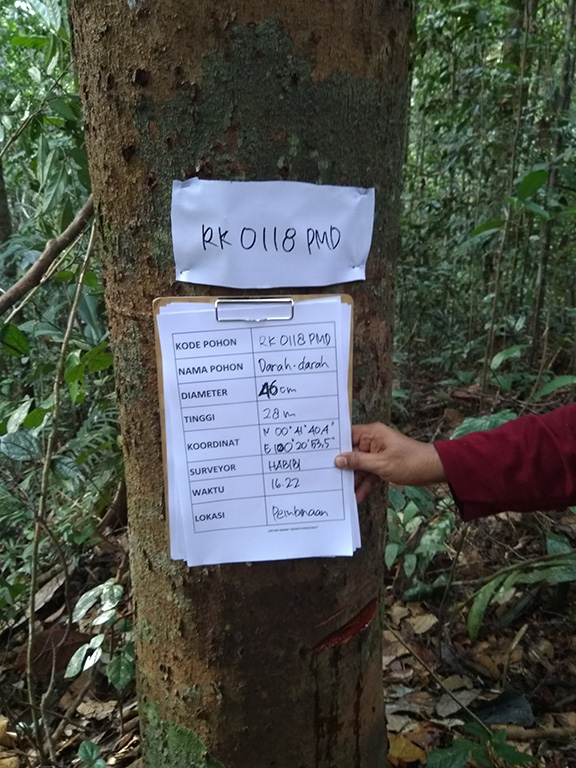 RK 0118 PMD
KODE POHON RK 0118 PMD
NAMA POHON Darah-darah
DIAMETER 46 cm
TINGGI 28 m
KOORDINAT N 00° 41' 40,4"
E 100° 20' 53,5"
SURVEYOR HABIBI
WAKTU 16.22
LOKASI Pembinaan